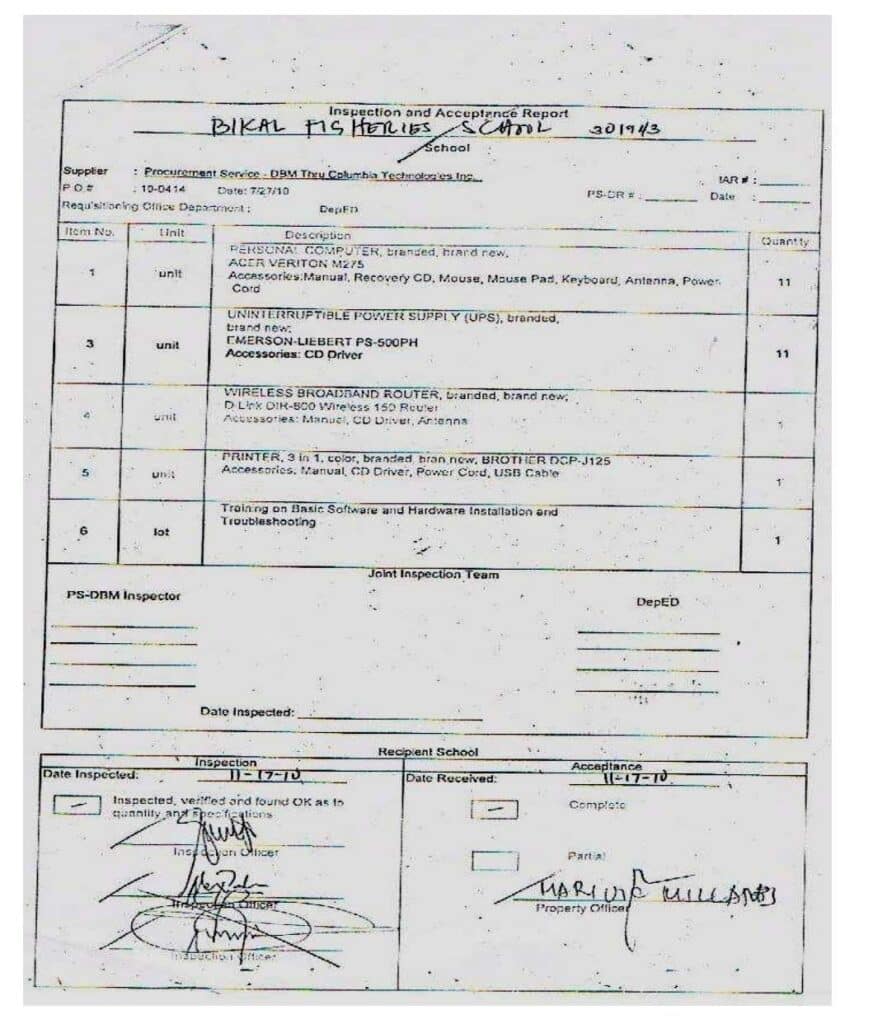 Inspection and Acceptance Report
BIKAL FISHERIES SCHOOL 301943
School
Supplier : Procurement Service - DBM Thru Columbia Technologies Inc.
IAR # :
P.O.# : 10-0414 Date: 7/27/10
PS-DR # : Date :
Requisitioning Office Department : DepED
Item No. Unit Description Quantity
PERSONAL COMPUTER, branded, brand new,
ACER VERITON M275
1 unit Accessories:Manual, Recovery CD, Mouse, Mouse Pad, Keyboard, Antenna, Power 11
Cord
UNINTERRUPTIBLE POWER SUPPLY (UPS), branded,
brand new;
3 unit EMERSON-LIEBERT PS-500PH 11
Accessories: CD Driver
WIRELESS BROADBAND ROUTER, branded, brand new;
D-Link DIR-600 Wireless 150 Router
4 unit Accessories: Manual, CD Driver, Antenna 1
PRINTER, 3 in 1, color, branded, bran new, BROTHER DCP-J125
5 unit Accessories, Manual, CD Driver, Power Cord, USB Cable 1
Training on Basic Software and Hardware Installation and
Troubleshooting
6 lot 1
Joint Inspection Team
PS-DBM Inspector DepED
Date Inspected:
Recipient School
Inspection Acceptance
Date Inspected: 11-17-10 Date Received: 11-17-10
Inspected, verified and found OK as to
quantity and specifications
Complete
Inspection Officer
Partial
Inspection Officer
MARIVIC MILLANES
Property Officer
Inspection Officer